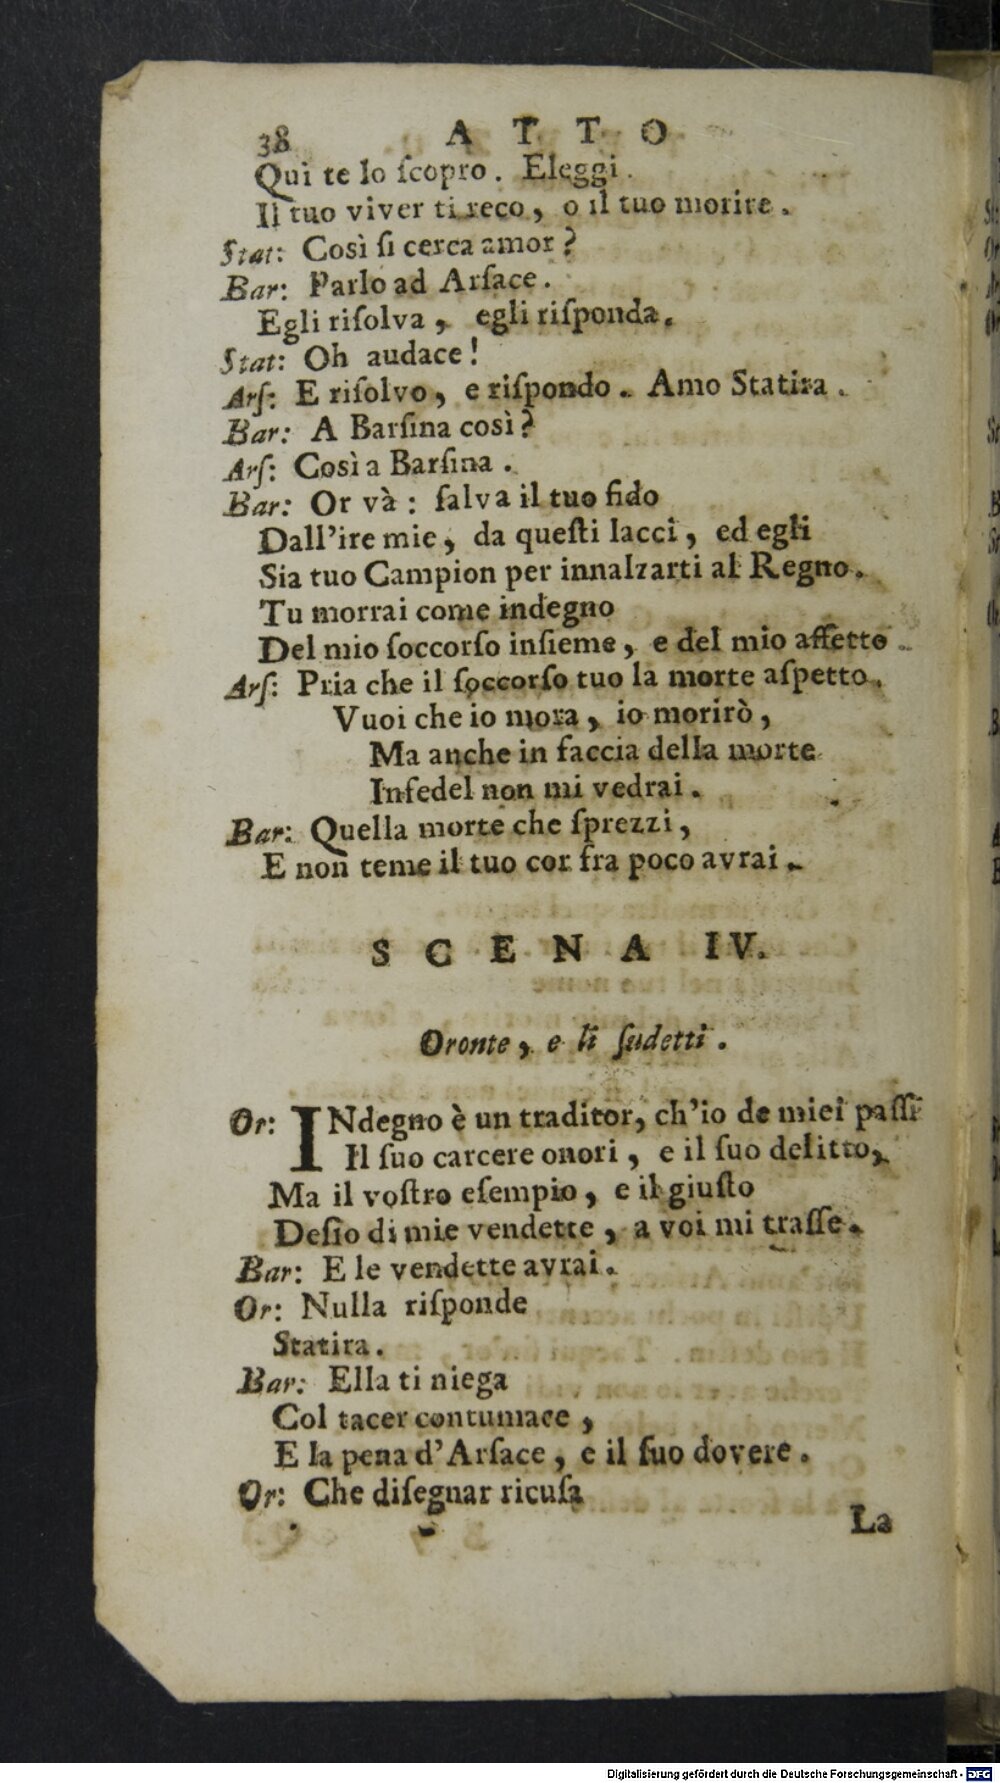 38 ATTO
Qui te lo ſcopro. Eleggi.
Il tuo viver ti reco, o il tuo morire.
Stat: Così ſi cerca amor?
Bar: Parlo ad Arſace.
Egli riſolva, egli riſponda.
Stat: Oh audace!
Arſ: E riſolvo, e riſpondo. Amo Statira.
Bar: A Barſina così?
Arſ: Così a Barſina.
Bar: Or và: ſalva il tuo fido
Dall'ire mie, da queſti lacci, ed egli
Sia tuo Campion per innalzarti al Regno.
Tu morrai come indegno
Del mio ſoccorſo inſieme, e del mio affetto.
Arſ: Pria che il ſoccorſo tuo la morte aſpetto.
Vuoi che io mora, io morirò,
Ma anche in faccia della morte
Infedel non mi vedrai.
Bar: Quella morte che ſprezzi,
E non teme il tuo cor fra poco avrai.
SCENA IV.
Oronte, e li ſudetti.
Or: INdegno è un traditor, ch'io de miei paſſi
Il ſuo carcere onori, e il ſuo delitto,
Ma il voſtro eſempio, e il giuſto
Deſio di mie vendette, a voi mi traſſe.
Bar: E le vendette avrai.
Or: Nulla riſponde
Statira.
Bar: Ella ti niega
Col tacer contumace,
E la pena d'Arſace, e il ſuo dovere.
Or: Che diſegnar ricuſa
La
Digitalisierung gefördert durch die Deutsche Forschungsgemeinschaft - DFG